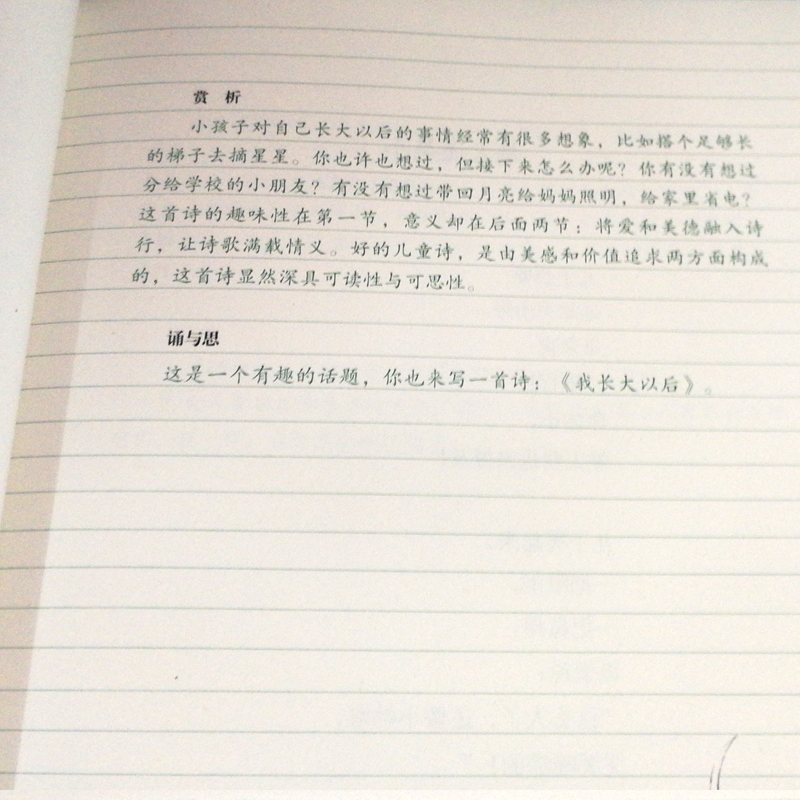 赏 析
小孩子对自己长大以后的事情经常有很多想象，比如搭个足够长
的梯子去摘星星。你也许也想过，但接下来怎么办呢？你有没有想过
分给学校的小朋友？有没有想过带回月亮给妈妈照明，给家里省电？
这首诗的趣味性在第一节，意义却在后面两节：将爱和美德融入诗
行，让诗歌满载情义。好的儿童诗，是由美感和价值追求两方面构成
的，这首诗显然深具可读性与可思性。
诵与思
这是一个有趣的话题，你也来写一首诗：《我长大以后》。